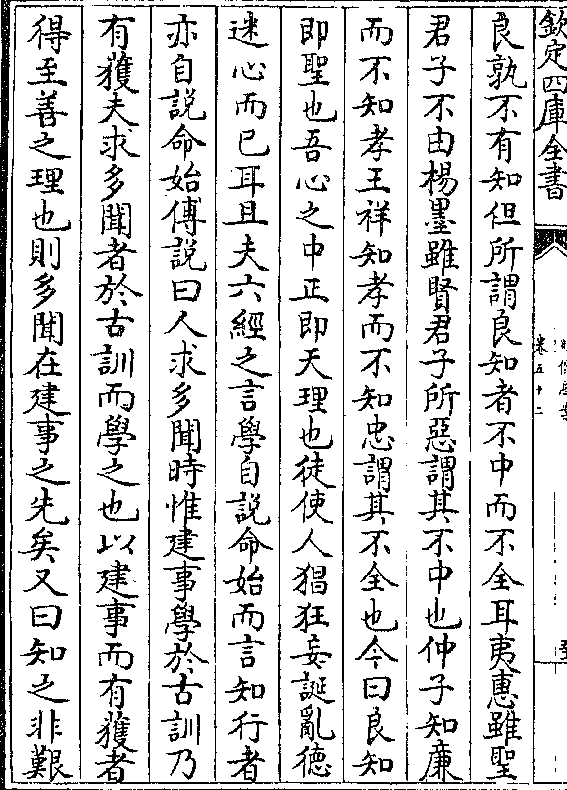 欽定四庫全書
卷五十二
良孰不有知但所謂良知者不中而不全耳夷惠雖聖
君子不由楊墨雖賢君子所惡謂其不中也仲子知廉
而不知孝王祥知孝而不知忠謂其不全也今曰良知
即聖也吾心之中正即天理也徒使人猖狂妄誕亂德
迷心而已耳且夫六經之言學自說命始而言知行者
亦自說命始傅說曰人求多聞時惟建事學於古訓乃
有獲夫求多聞者於古訓而學之也以建事而有獲者
得至善之理也則多聞在建事之先矣又曰知之非艱